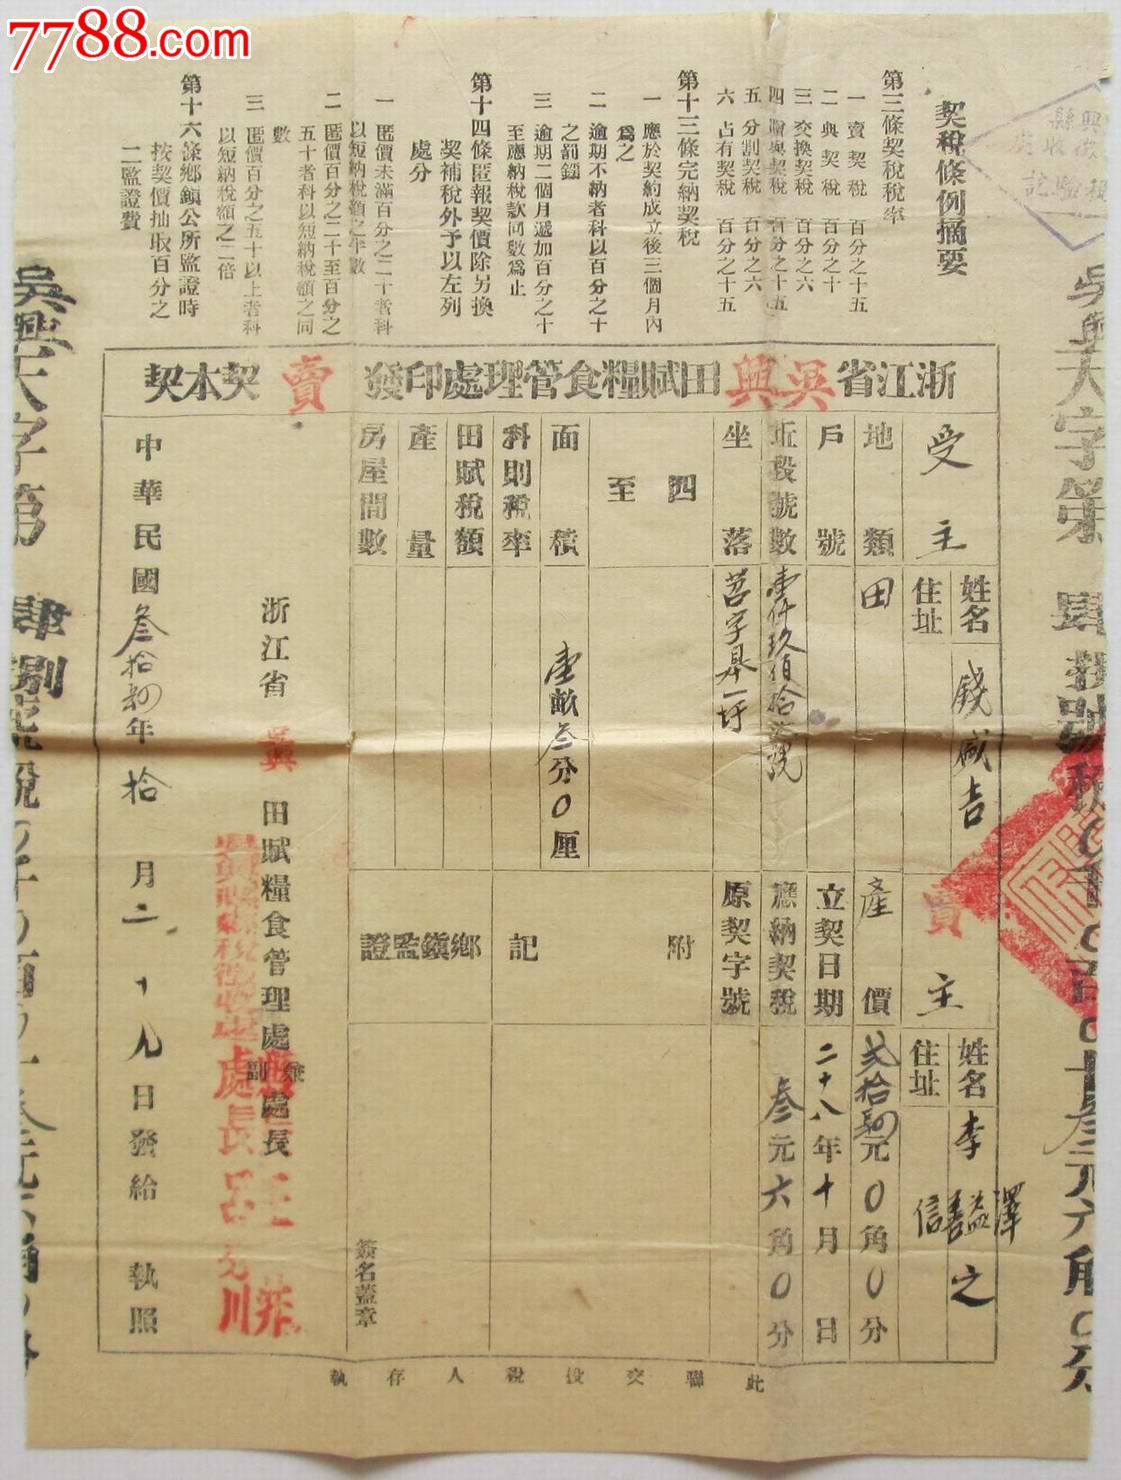 7788.com
契稅條例摘要
第三條契稅稅率
一 賣契稅 百分之十五
二 典契稅 百分之十
三 交換契稅 百分之六
四 贈與契稅 百分之十五
五 分割契稅 百分之六
六 占有契稅 百分之十五
第十三條完納契稅
一 應於契約成立後三個月內
為之
二 逾期不納者科以百分之十
之罰鍰
三 逾期二個月遞加百分之十
至應納稅款同數為止
第十四條匿報契價除另換
契補稅外予以左列
處分
一 匿價未滿百分之二十者科
以短納稅額之半數
二 匿價百分之二十至百分之
五十者科以短納稅額之同
數
三 匿價百分之五十以上者科
以短納稅額之二倍
第十六條鄉鎮公所監證時
按契價抽取百分之
二監證費
浙江省吳興田賦糧食管理處印發賣契本契
受主
姓名 錢咸吉
住址
賣主
姓名 李 澤益善信 之
住址
地類 田
產價 弐拾肆元0角0分
戶號
立契日期 二十八年十月 日
坵段號數 壹仟玖佰拾 號
應納契稅 叁元六角0分
坐落 苕字 一圩
原契字號
四至
附記
面積 壹畝叁分0厘
科則稅率
田賦稅額
鄉鎮監證
產量
房屋間數
簽名蓋章
浙江省吳 田賦糧食管理處兼副處長
處長
中華民國叁拾肆年拾月二十九日發給 執照
此聯交投稅人存執
吳興大字第 肆捌號稅0千0百0十叁元六角0分